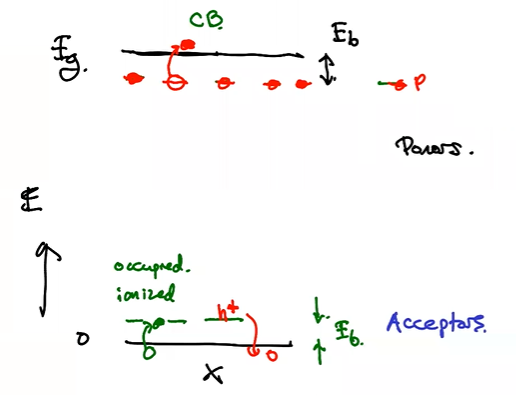 CB.
Eg.
Eb
P
Donors.
E
occupied.
ionized
h+
Eb.
Acceptors.
0
x